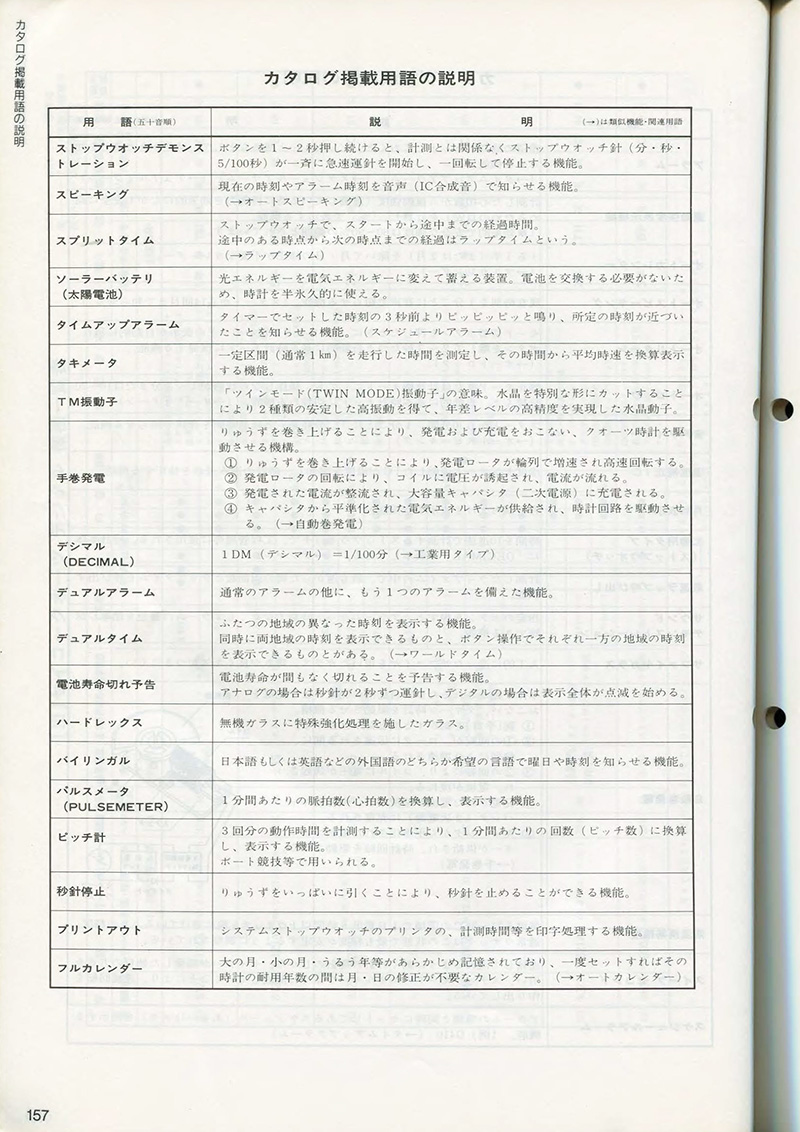 カタログ掲載用語の説明
カタログ掲載用語の説明
用　語(五十音順)
説　明
(→)は類似機能・関連用語
ストップウオッチデモンス
トレーション
ボタンを1～2秒押し続けると、計測とは関係なくストップウオッチ針（分・秒・
5/100秒）が一斉に急速運針を開始し、一回転して停止する機能。
スピーキング
現在の時刻やアラーム時刻を音声（IC合成音）で知らせる機能。
（→オートスピーキング）
スプリットタイム
ストップウオッチで、スタートから途中までの経過時間。
途中のある時点から次の時点までの経過はラップタイムという。
（→ラップタイム）
ソーラーバッテリ
（太陽電池）
光エネルギーを電気エネルギーに変えて蓄える装置。電池を交換する必要がないた
め、時計を半永久的に使える。
タイムアップアラーム
タイマーでセットした時刻の3秒前よりピッピッピッと鳴り、所定の時刻が近づい
たことを知らせる機能。（スケジュールアラーム）
タキメータ
一定区間（通常1km）を走行した時間を測定し、その時間から平均時速を換算表示
する機能。
TM振動子
「ツインモード(TWIN MODE)振動子」の意味。水晶を特別な形にカットすること
により2種類の安定した高振動を得て、年差レベルの高精度を実現した水晶動子。
手巻発電
りゅうずを巻き上げることにより、発電および充電をおこない、クオーツ時計を駆
動させる機構。
① りゅうずを巻き上げることにより、発電ロータが輪列で増速され高速回転する。
② 発電ロータの回転により、コイルに電圧が誘起され、電流が流れる。
③ 発電された電流が整流され、大容量キャパシタ（二次電源）に充電される。
④ キャパシタから平準化された電気エネルギーが供給され、時計回路を駆動させ
る。（→自動巻発電）
デシマル
（DECIMAL）
1DM（デシマル）＝1/100分（→工業用タイプ）
デュアルアラーム
通常のアラームの他に、もう1つのアラームを備えた機能。
デュアルタイム
ふたつの地域の異なった時刻を表示する機能。
同時に両地域の時刻を表示できるものと、ボタン操作でそれぞれ一方の地域の時刻
を表示できるものとがある。（→ワールドタイム）
電池寿命切れ予告
電池寿命が間もなく切れることを予告する機能。
アナログの場合は秒針が2秒ずつ運針し、デジタルの場合は表示全体が点滅を始める。
ハードレックス
無機ガラスに特殊強化処理を施したガラス。
バイリンガル
日本語もしくは英語などの外国語のどちらか希望の言語で曜日や時刻を知らせる機能。
パルスメータ
（PULSEMETER）
1分間あたりの脈拍数(心拍数)を換算し、表示する機能。
ピッチ計
3回分の動作時間を計測することにより、1分間あたりの回数（ピッチ数）に換算
し、表示する機能。
ボート競技等で用いられる。
秒針停止
りゅうずをいっぱいに引くことにより、秒針を止めることができる機能。
プリントアウト
システムストップウオッチのプリンタの、計測時間等を印字処理する機能。
フルカレンダー
大の月・小の月・うるう年等があらかじめ記憶されており、一度セットすればその
時計の耐用年数の間は月・日の修正が不要なカレンダー。（→オートカレンダー）
157